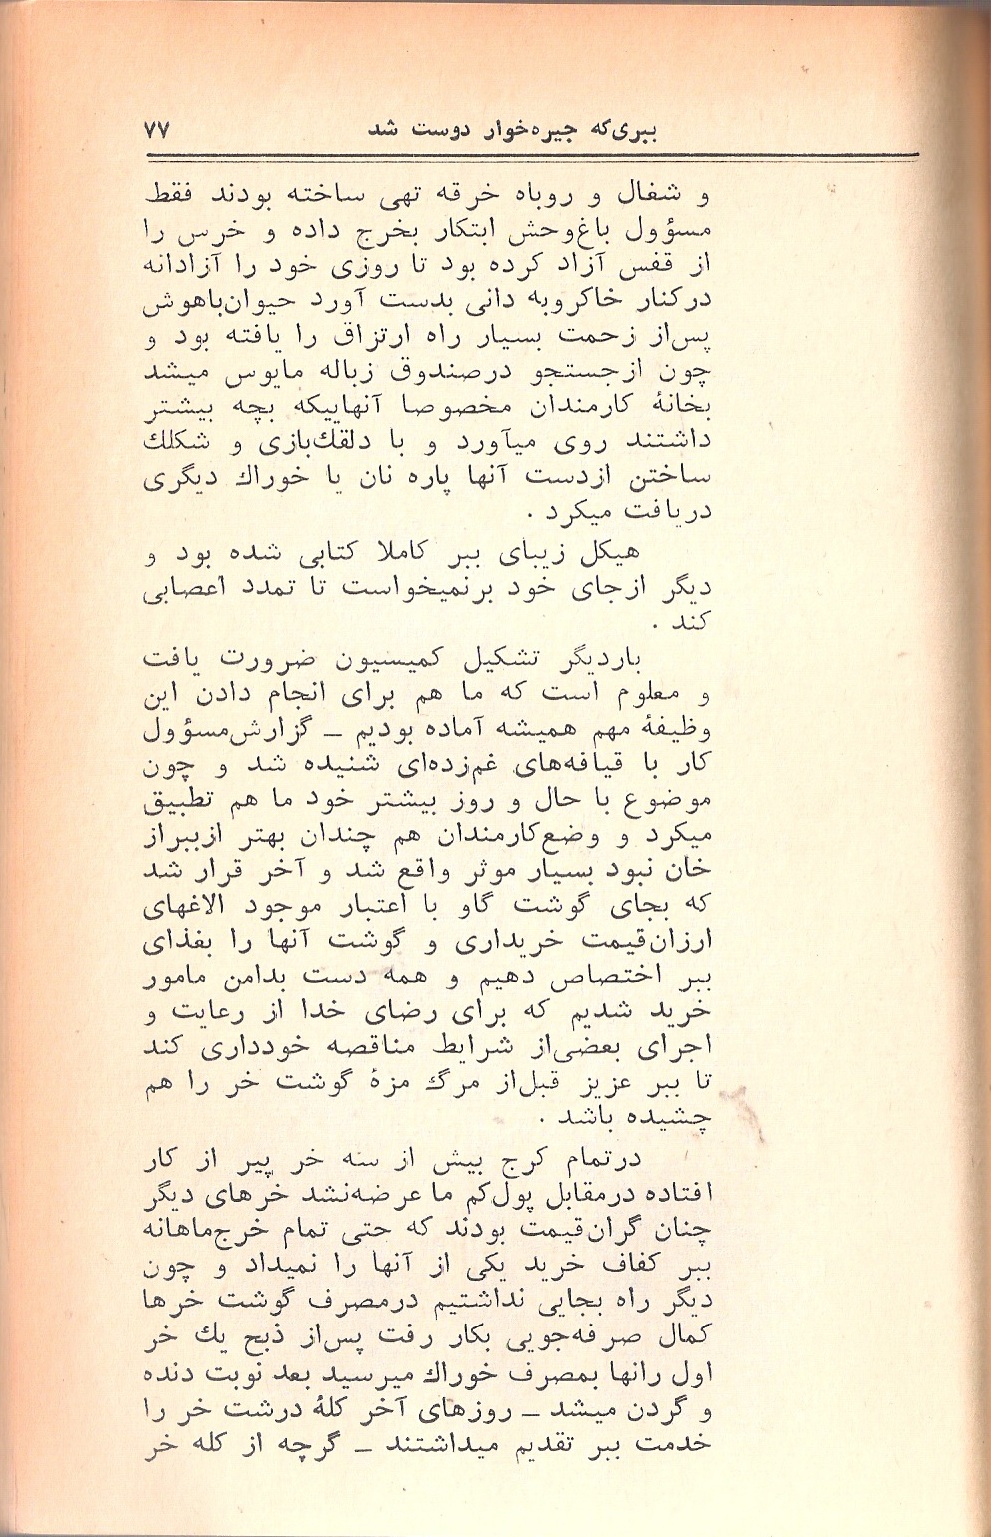 ببری‌که جیره‌خوار دوست شد ۷۷
و شغال و روباه خرقه تهی ساخته بودند فقط
مسؤول باغ‌وحش ابتکار بخرج داده و خرس را
از قفس آزاد کرده بود تا روزی خود را آزادانه
درکنار خاکروبه دانی بدست آورد حیوان‌باهوش
پس‌از زحمت بسیار راه ارتزاق را یافته بود و
چون ازجستجو درصندوق زباله مایوس میشد
بخانهٔ کارمندان مخصوصا آنهاییکه بچه بیشتر
داشتند روی میآورد و با دلقك‌بازی و شکلك
ساختن ازدست آنها پاره نان یا خوراك دیگری
دریافت میکرد .
هیکل زیبای ببر کاملا کتابی شده بود و
دیگر ازجای خود برنمیخواست تا تمدد اعصابی
کند .
باردیگر تشکیل کمیسیون ضرورت یافت
و معلوم است که ما هم برای انجام دادن این
وظیفهٔ مهم همیشه آماده بودیم ـ گزارش‌مسؤول
کار با قیافه‌های غم‌زده‌ای شنیده شد و چون
موضوع با حال و روز بیشتر خود ما هم تطبیق
میکرد و وضع‌کارمندان هم چندان بهتر ازببراز
خان نبود بسیار موثر واقع شد و آخر قرار شد
که بجای گوشت گاو با اعتبار موجود الاغهای
ارزان‌قیمت خریداری و گوشت آنها را بغذای
ببر اختصاص دهیم و همه دست بدامن مامور
خرید شدیم که برای رضای خدا از رعایت و
اجرای بعضی‌از شرایط مناقصه خودداری کند
تا ببر عزیز قبل‌از مرگ مزهٔ گوشت خر را هم
چشیده باشد .
درتمام کرج بیش از سه خر پیر از کار
افتاده درمقابل پول‌کم ما عرضه‌نشد خرهای دیگر
چنان گران‌قیمت بودند که حتی تمام خرج‌ماهانه
ببر کفاف خرید یکی از آنها را نمیداد و چون
دیگر راه بجایی نداشتیم درمصرف گوشت خرها
کمال صرفه‌جویی بکار رفت پس‌از ذبح یك خر
اول رانها بمصرف خوراك میرسید بعد نوبت دنده
و گردن میشد ـ روزهای آخر کلهٔ درشت خر را
خدمت ببر تقدیم میداشتند ـ گرچه از کله خر